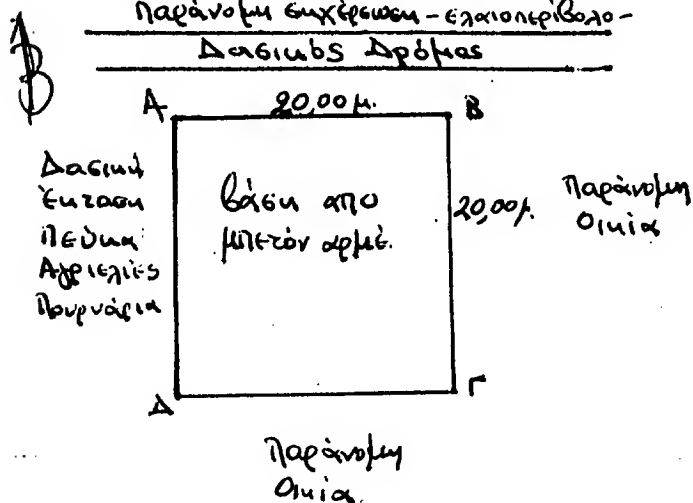 Β
Παράνομη εκχέρσωση - ελαιοπερίβολο -
Δασικός Δρόμος
Α 20,00 μ. Β
Δασική
Έκταση
Πεύκα
Αγριελιές
Πουρνάρια
βάση από
μπετόν αρμέ.
20,00 μ.
Παράνομη
Οικία
Δ Γ
Παράνομη
Οικία.